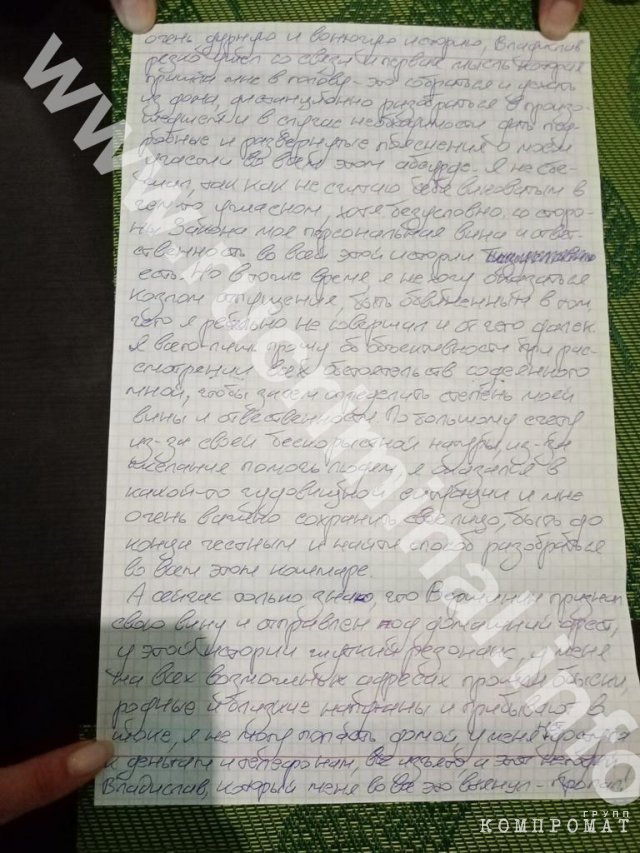 очень дурную и вонючую историю, Владислав
резко ушел со связи и первая мысль которая
пришла мне в голову - это собраться и уехать
из дома, дистанционно разобраться в произо-
шедшем и в случае необходимости дать под-
робные и развернутые пояснения о моем
участии во всем этом абсурде. Я не сбе-
жал, так как не считаю себя виноватым в
чем-то ужасном, хотя безусловно, со сторо-
ны Закона моя персональная вина и ответ-
ственность во всей этой истории
есть. Но в тоже время я не хочу оказаться
козлом отпущения, быть обвиненным в том
чего я реально не совершал и от чего далек
Я всего лишь прошу об объективности при рас-
смотрении всех обстоятельств содеянного
мной, чтобы затем определить степень моей
вины и ответственности. По большому счету
из-за своей бескорыстной натуры, из-за
желания помочь людям я оказался в
какой-то чудовищной ситуации и мне
очень важно сохранить свое лицо, быть до
конца честным и найти способ разобраться
во всем этом кошмаре.
А сейчас только знаю, что признал
свою вину и отправлен под домашний арест,
у этой истории жуткий резонанс, у меня
на всех возможных адресах прошли обыски,
родные и близкие напуганы и пребывают в
шоке, я не могу попасть домой, у меня нет доступа
к деньгам и телефонам, все изъято, а этот
Владислав, который меня во все это втянул - пропал
www.rucriminal.info
ГРУПП
КОМПРОМАТ